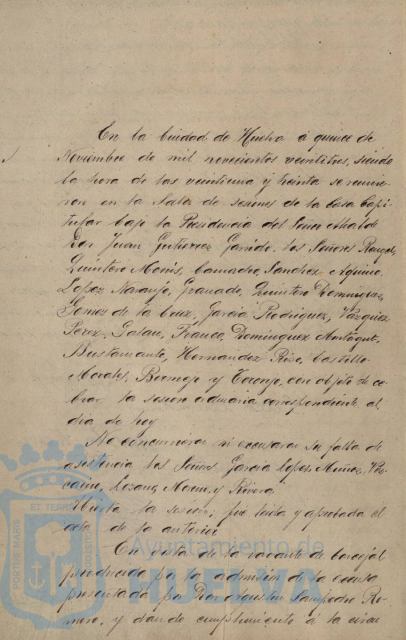 En la Ciudad de Huelva á quince de
Noviembre de mil novecientos veintitres, siendo
la hora de las veintiuna y treinta se reunie-
ron en la Sala de sesiones de la Casa Capi-
tular bajo la Presidencia del Señor Alcalde
Don Juan Gutierrez Garrido los Señores Rangel,
Quintero Monis, Camacho, Sanchez Aquino,
Lopez Naranjo, Granado, Quintero Dominguez,
Gomez de la Cruz, Garcia Rodriguez, Vazquez
Perez, Galan, Franco, Dominguez
Bustamante, Hernandez Castillo
Morales, Bermejo y con objeto de ce-
lebrar la sesión ordinaria correspondiente al
dia de hoy
No concurrieron ni excusaron su falta de
asistencia los Señores Garcia Lopez, Muñoz, Viz-
caino, Lozano, y Rivera
Abierta la sesion, fué leida y aprobada el
acta de la anterior
En vista de la vacante de Concejal
producida por la admision de la excusa
presentada por Don Sampedro Ro-
mero, y dando cumplimiento á la circu-
Ayuntamiento de
HUELVA
PORTUS MARIS
ET TERRAE
CUSTODIA